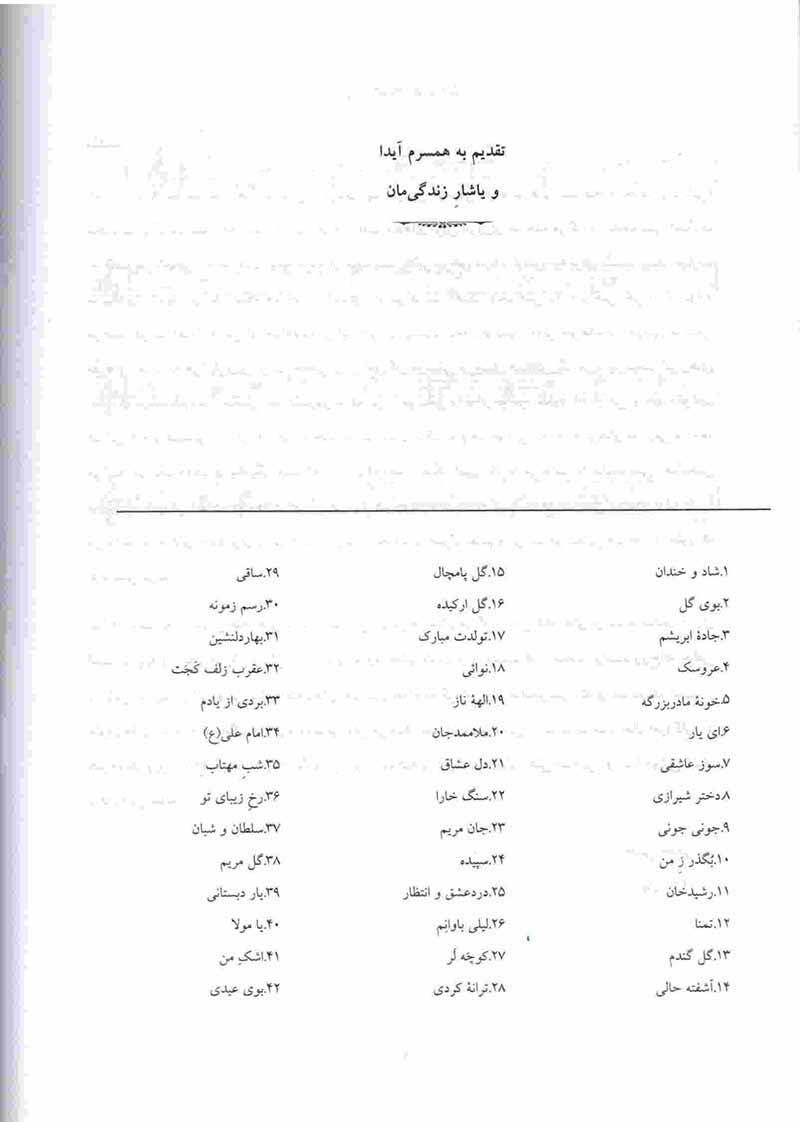 تقدیم به همسرم آیدا
و یاشارِ زندگی‌مان
۱.شاد و خندان
۲.بوی گل
۳.جادهٔ ابریشم
۴.عروسک
۵.خونهٔ مادربزرگه
۶.ای یار
۷.سوز عاشقی
۸.دختر شیرازی
۹.جونی جونی
۱۰.بُگذر زِ من
۱۱.رشیدخان
۱۲.تمنا
۱۳.گل گندم
۱۴.آشفته حالی
۱۵.گل پامچال
۱۶.گل ارکیده
۱۷.تولدت مبارک
۱۸.نوائی
۱۹.الههٔ ناز
۲۰.ملاممدجان
۲۱.دل عشاق
۲۲.سنگ خارا
۲۳.جان مریم
۲۴.سپیده
۲۵.دردعشق و انتظار
۲۶.لیلی باوانِم
۲۷.کوچَه لَر
۲۸.ترانهٔ کردی
۲۹.ساقی
۳۰.رسم زمونه
۳۱.بهاردلنشین
۳۲.عقرب زلف کَجَت
۳۳.بردی از یادم
۳۴.امام علی(ع)
۳۵.شبِ مهتاب
۳۶.رخِ زیبای تو
۳۷.سلطان و شبان
۳۸.گل مریم
۳۹.یار دبستانی
۴۰.یا مولا
۴۱.اشکِ من
۴۲.بوی عیدی